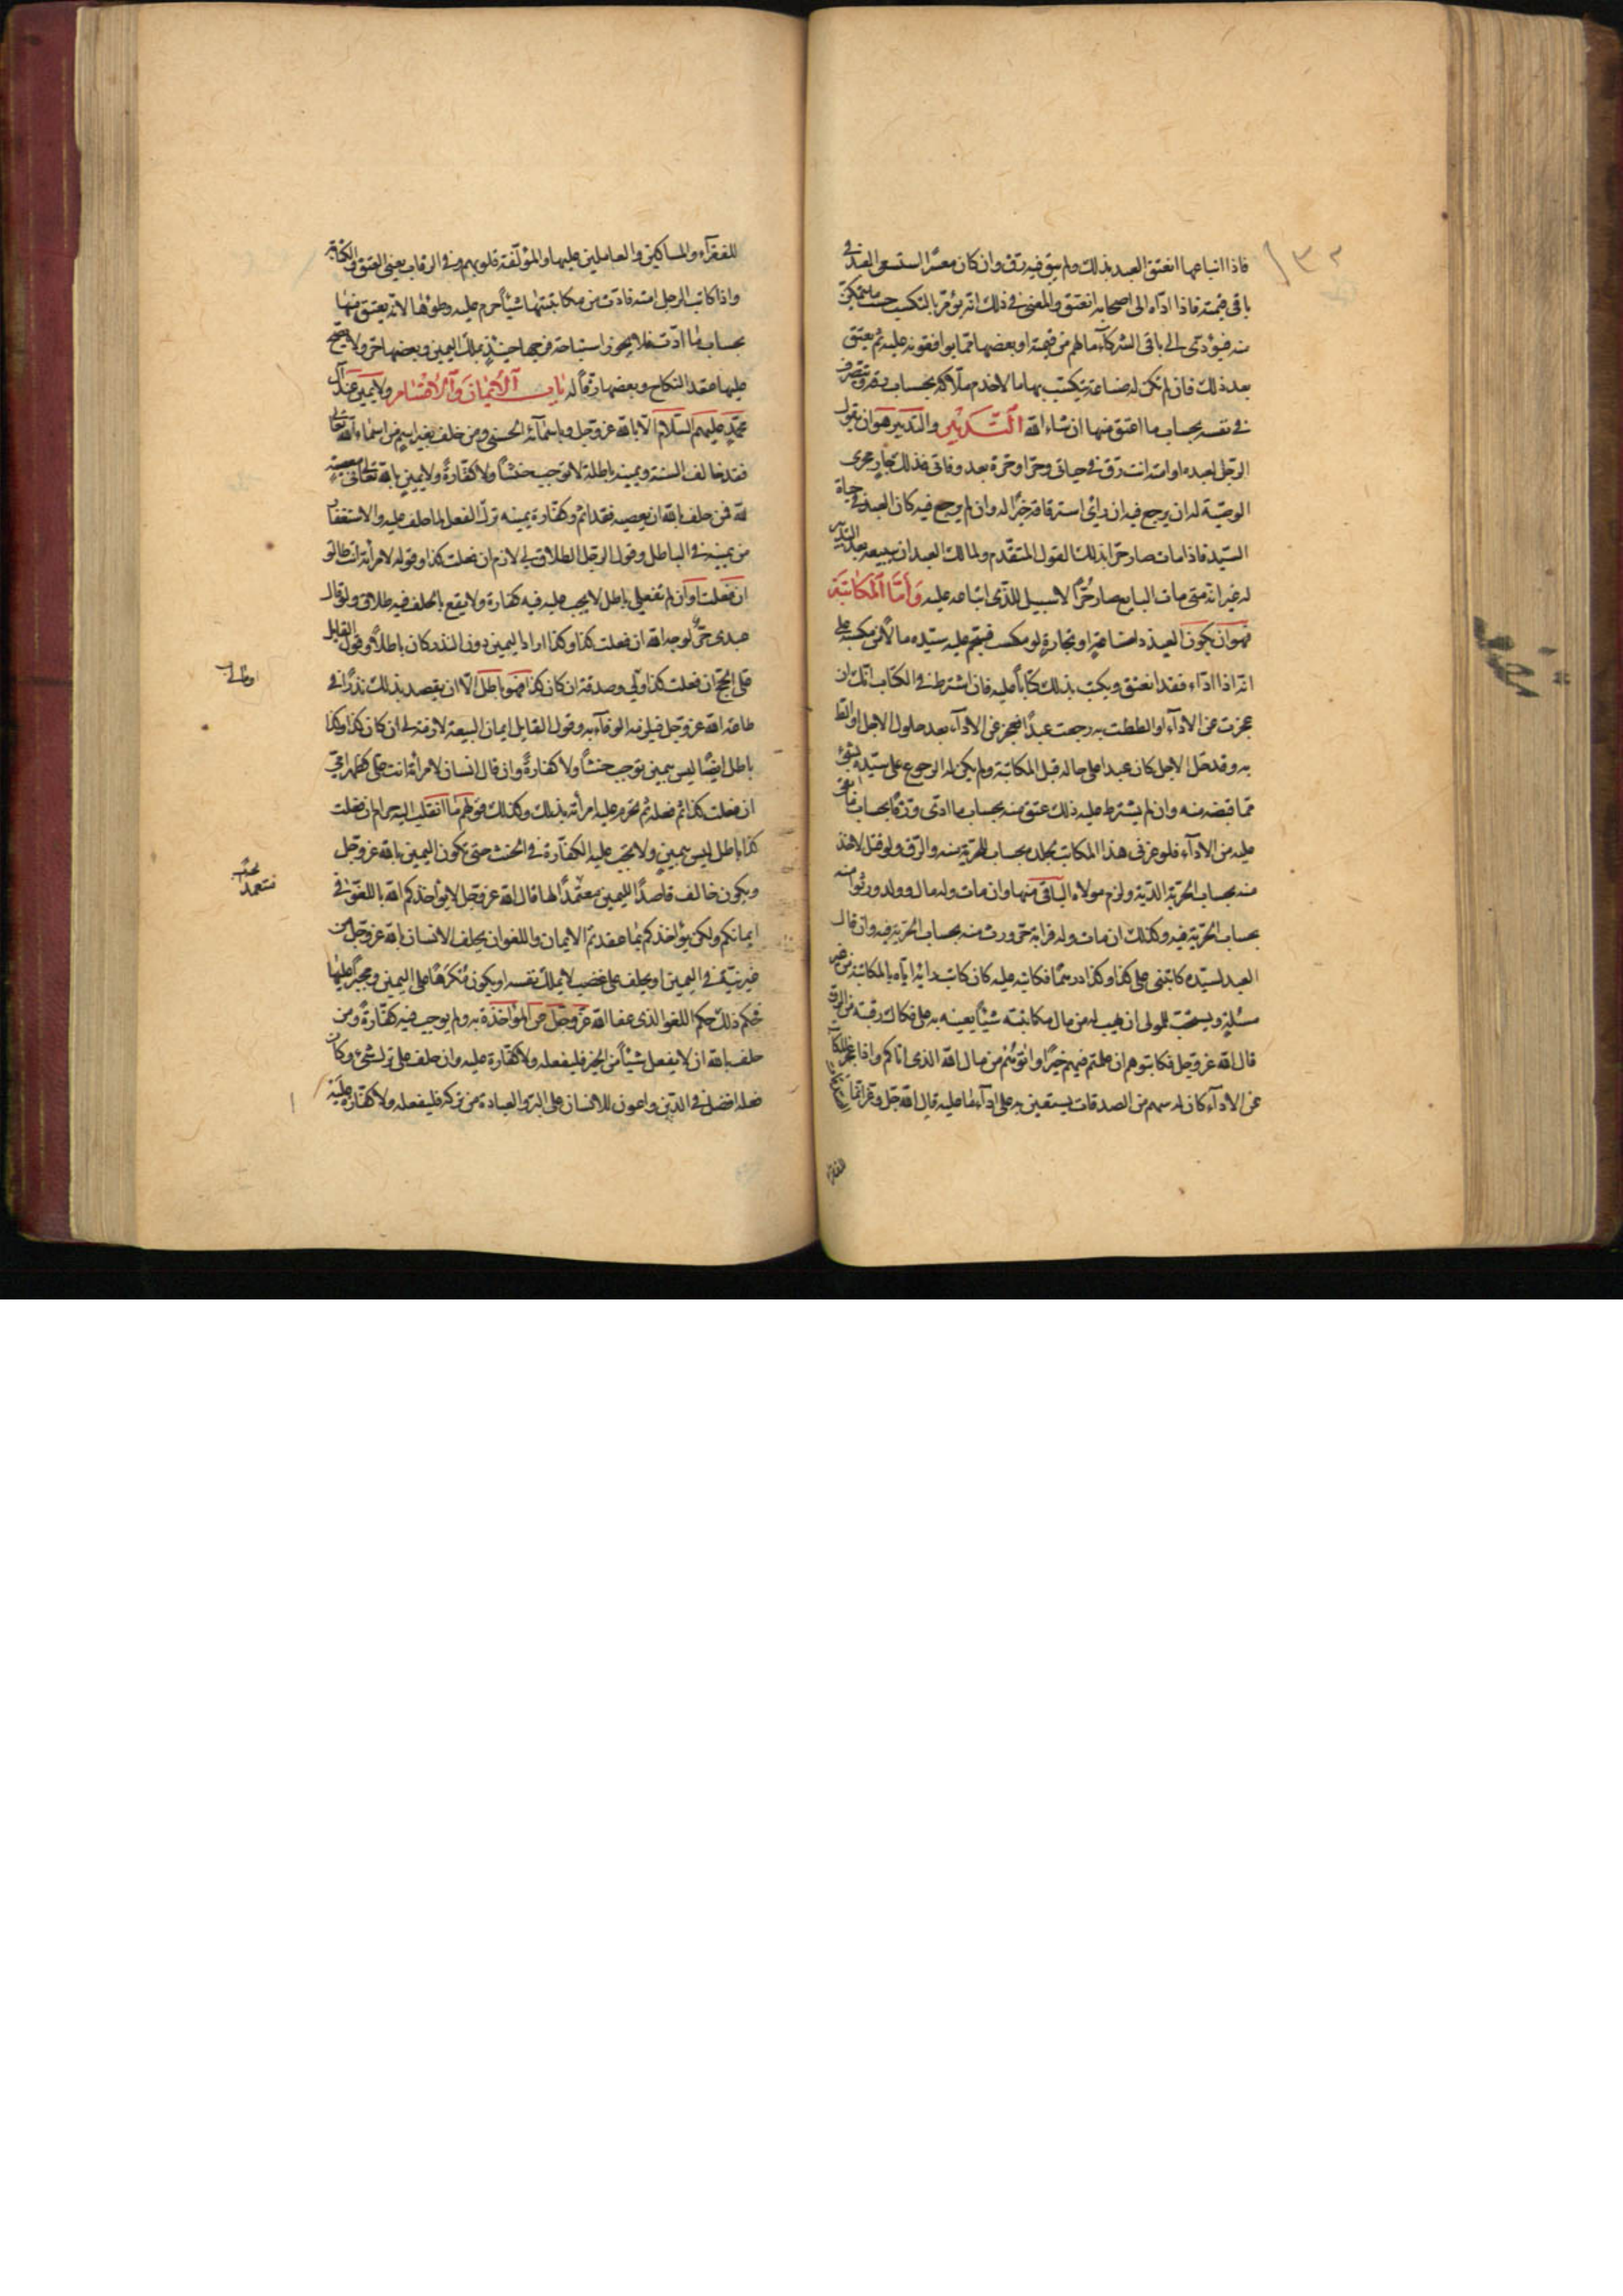 ١٣٢
فاذا ابتاعها انعتق العبد بذلك ولم يبق فيه رق وان كان معسرا استسعى العبد في
باقي قيمته فاذا اداه الى اصحابه انعتق والمعنى في ذلك انه يؤمر بالتكسب حسب ما يتمكن
منه فيؤدي الى باقي الشركآء مالهم من قيمته او بعضها مما يوافقونه عليه ثم يعتق
بعد ذلك فان لم تكن له صناعة يكتسب بها مالا خدم ملاكه بحساب رقه وتصرف
في نفسه بحساب ما اعتق منها ان شاء الله التدبير والتدبير هو ان يقول
الرجل لعبده او امته انت رق في حياتي وحر او حرة بعد وفاتي فذلك جار مجرى
الوصية له ان يرجع فيه ان راى استرقاقه خيرا له وان لم يرجع فيه كان العبد في حياة
السيد فاذا مات صار حرا بذلك القول المتقدم ولمالك العبد ان يبيعه بعد التدبير
له غير انه متى مات البايع صار حرا لا سبيل للذي ابتاعه عليه واما المكاتبة
فهو ان يكون العبد ذا صناعة او تجارة او مكسب فيقيم عليه سيده مالا من مكسبه على
انه اذا اداه فقد انعتق ويكتب بذلك كتابا عليه فان اشترط في الكتاب انك ان
عجزت عن الادآء او الططت به رجعت عبدا فعجز عن الادآء بعد حلول الاجل او الط
به وقد حل الاجل كان عبدا على حاله قبل المكاتبة ولم يكن له الرجوع على سيده بشئ
مما قبضه منه وان لم يشترط عليه ذلك عتق منه بحساب ما ادى ورق بحساب ما بقي
عليه من الادآء فلو زنى هذا المكاتب لجلد بحساب الحرية منه والرق ولو قتل لاخذ
منه بحساب الحرية الدية ولزم مولاه الباقي منها وان مات وله مال وولد ورثوا منه
بحساب الحرية فيه وكذلك ان مات وله قرابة حر ورث منه بحساب الحرية فيه وان قال
العبد لسيده كاتبني على كذا وكذا درهما فكاتبه عليه كان كابتدائه اياه بالمكاتبة من غير
مسئلة ويستحب للمولى ان يهب له من مال مكاتبته شيئا يعينه به على فكاك رقبته من الرق
قال الله عز وجل فكاتبوهم ان علمتم فيهم خيرا واتوهم من مال الله الذي اتاكم واذا عجز المكاتب
عن الادآء كان له سهم من الصدقات يستعين به على ادآء ما عليه قال الله جل وعز انما الصدقات
للفقرآء
للفقرآء والمساكين والعاملين عليها والمؤلفة قلوبهم وفي الرقاب يعني العتق والمكاتبة
واذا كاتب الرجل امته فادت من مكاتبتها شيئا حرم عليه وطؤها لانه يعتق منها
بحساب ما ادت فلا يجوز استباحة فرجها حينئذ بملك اليمين وبعضها حر ولا يصح
عليها عقد النكاح وبعضها رق له باب الايمان والاقسام ولا يمين عند آل
محمد عليهم السلام الا بالله عز وجل وباسمآئه الحسنى ومن حلف بغير اسم من اسماء الله تعالى
فقد خالف السنة ويمينه باطلة لا توجب حنثا ولا كفارة ولا يمين بالله تعالى في معصية
لله فمن حلف بالله ان يعصيه فقد اثم وكفارة يمينه ترك الفعل لما حلف عليه والاستغفار
من يمينه في الباطل وقول الرجل الطلاق لي لازم ان فعلت كذا وقوله لامرأته انت طالق
ان فعلت او ان لم تفعلي باطل لا يجب عليه فيه كفارة ولا يقع بالحلف فيه طلاق ولو قال
عبدي حر لوجه الله ان فعلت كذا وكذا اراد اليمين دون النذر كان باطلا وقول القايل
علي الحج ان فعلت كذا ومالي صدقة ان كان كذا فهو باطل الا ان يقصد بذلك نذرا في
طاعة الله عز وجل فيلزمه الوفآء به وقول القايل ايمان البيعة لازمة لي ان كان كذا وكذا
باطل ايضا ليس بيمين توجب حنثا ولا كفارة وان قال انسان لامرأته انت علي كظهر امي
ان فعلت كذا ثم فعله لم تحرم عليه امرأته بذلك وكذلك قولهم ما انقلب اليه حرام ان فعلت
كذا باطل ليس بيمين ولا تجب عليه الكفارة في الحنث حتى يكون اليمين بالله عز وجل
ويكون حالف قاصدا لليمين معتمدا لها قال الله عز وجل لا يؤاخذكم الله باللغو في
ايمانكم ولكن يؤاخذكم بما عقدتم الايمان واللغو ان يحلف الانسان بالله عز وجل من
غير نية في اليمين او يحلف على غضب لا يملك نفسه او يكون مكرها على اليمين ومجبرا عليها
فحكم ذلك حكم اللغو الذي عفا الله عز وجل عن المؤاخذة به ولم يوجب فيه كفارة ومن
حلف بالله ان لا يفعل شيئا من الخير فليفعله ولا كفارة عليه وان حلف على ترك شئ وكان
فعله افضل في الدين واعون للانسان على البر والعبادة من تركه فليفعله ولا كفارة عليه